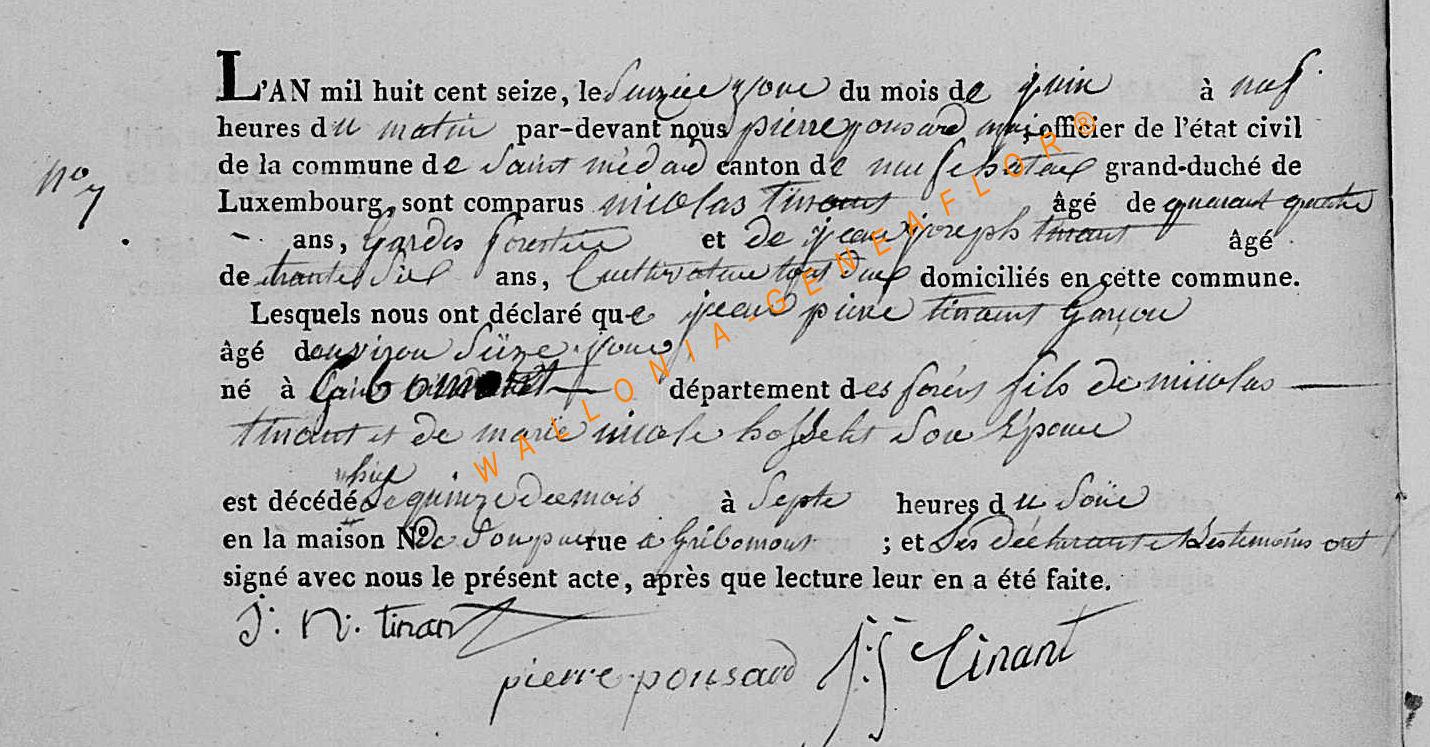 L'AN mil huit cent seize, le Seuzieе jour du mois de juin à neuf
heures du matin par-devant nous pierre ponsard officier de l'état civil
de la commune de Saint médard canton de neufchateau grand-duché de
No 7
Luxembourg, sont comparus nicolas tinant âgé de quarant quatre
ans, garde forestier et de jean joseph tinant âgé
de trante ans, Cultivateur tous deux domiciliés en cette commune.
Lesquels nous ont déclaré que jean piere tinant Garçon
âgé denviron jour
né à Gribomont département des foréts fils de nicolas
tinant et de marie nicole son Épouse
hier
est décédé le quinze du mois à Septe heures du Soire
en la maison No de Son pere rue a Gribomont ; et Les déclarant et temoins ont
signé avec nous le présent acte, après que lecture leur en a été faite.
J. N. tinant
pierre ponsard J: J Tinant
WALLONIA-GENEAFLOR®